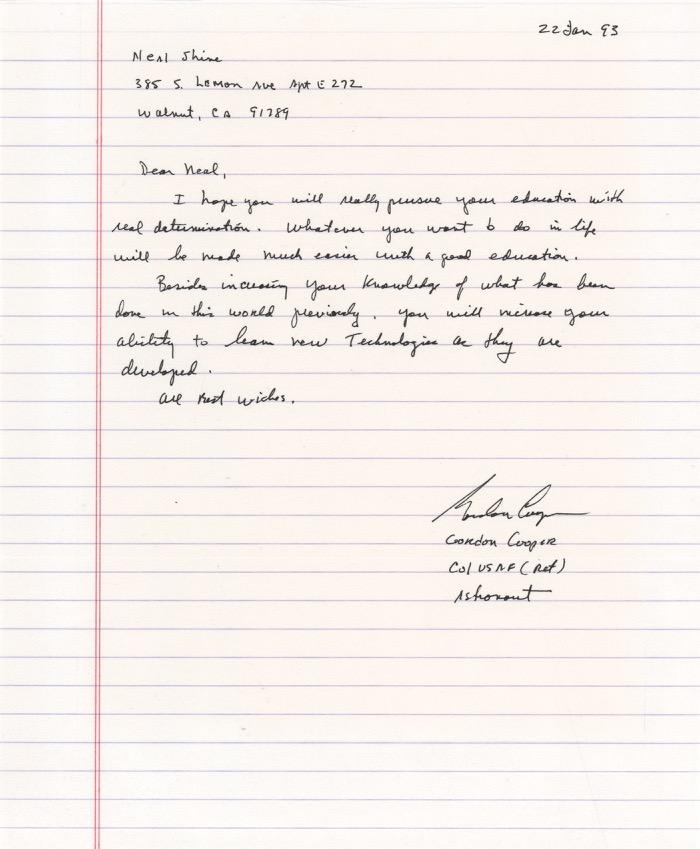 22 Jan 93
Neal Shine
385 S. Lemon Ave Apt E 272
Walnut, CA 91789
Dear Neal,
I hope you will really pursue your education with
real determination. Whatever you want to do in life
will be made much easier with a good education.
Besides increasing your knowledge of what has been
done in this world previously, you will increase your
ability to learn new Technologies as they are
developed.
All Best wishes.
Gordon Cooper
Gordon Cooper
Col USAF (Ret)
Astronaut